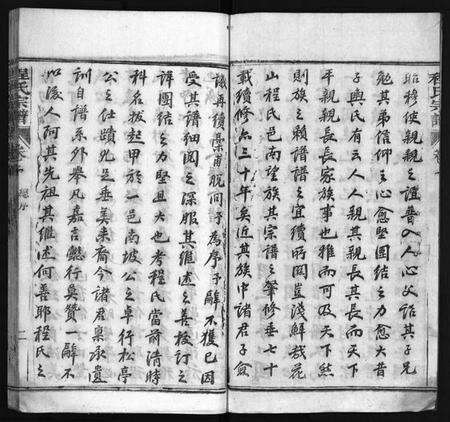 程氏宗譜
卷一
昭穆使親親之誼普入人心父詔其子兄
勉其弟信仰之心愈堅團結之力愈大昔
子輿氏有云人人親其親長其長而天下
平親親長長家族事也雖而可及天下然
則族之賴譜譜之宜續所關豈淺鮮哉花
山程氏邑南望族其宗譜之肇修垂七十
載續修亦三十年矣近其族中諸君子僉
議再續景甫脫向予為序予辭不獲已因
受其譜細閱之深服其繼述之善校訂之
詳團結之力堅且大也考程氏當前清時
科名拔起甲於一邑南坡公之卓行松亭
公之仕蹟尤足垂美來裔今諸君稟承遺
訓自譜系外舉凡嘉言懿行奠贊一辭不
以後人何其先祖其繼述何善耶程氏之
程氏宗譜
卷首
序
二